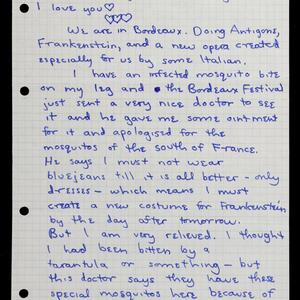 I love you
We are in Bordeaux. Doing Antigone,
Frankenstein, and a new opera created
especially for us by some Italian.
I have an infected mosquito bite
on my leg and the Bordeaux Festival
just sent a very nice doctor to see
it and he gave me some ointment
for it and apologised for the
mosquitos of the south of France.
He says I must not wear
bluejeans till it is all better - only
dresses - which means I must
create a new costume for Frankenstein
by the day after tomorrow.
But I am very relieved. I thought
I had been bitten by a
tarantula or something - but
this doctor says they have these
special mosquitos here because of